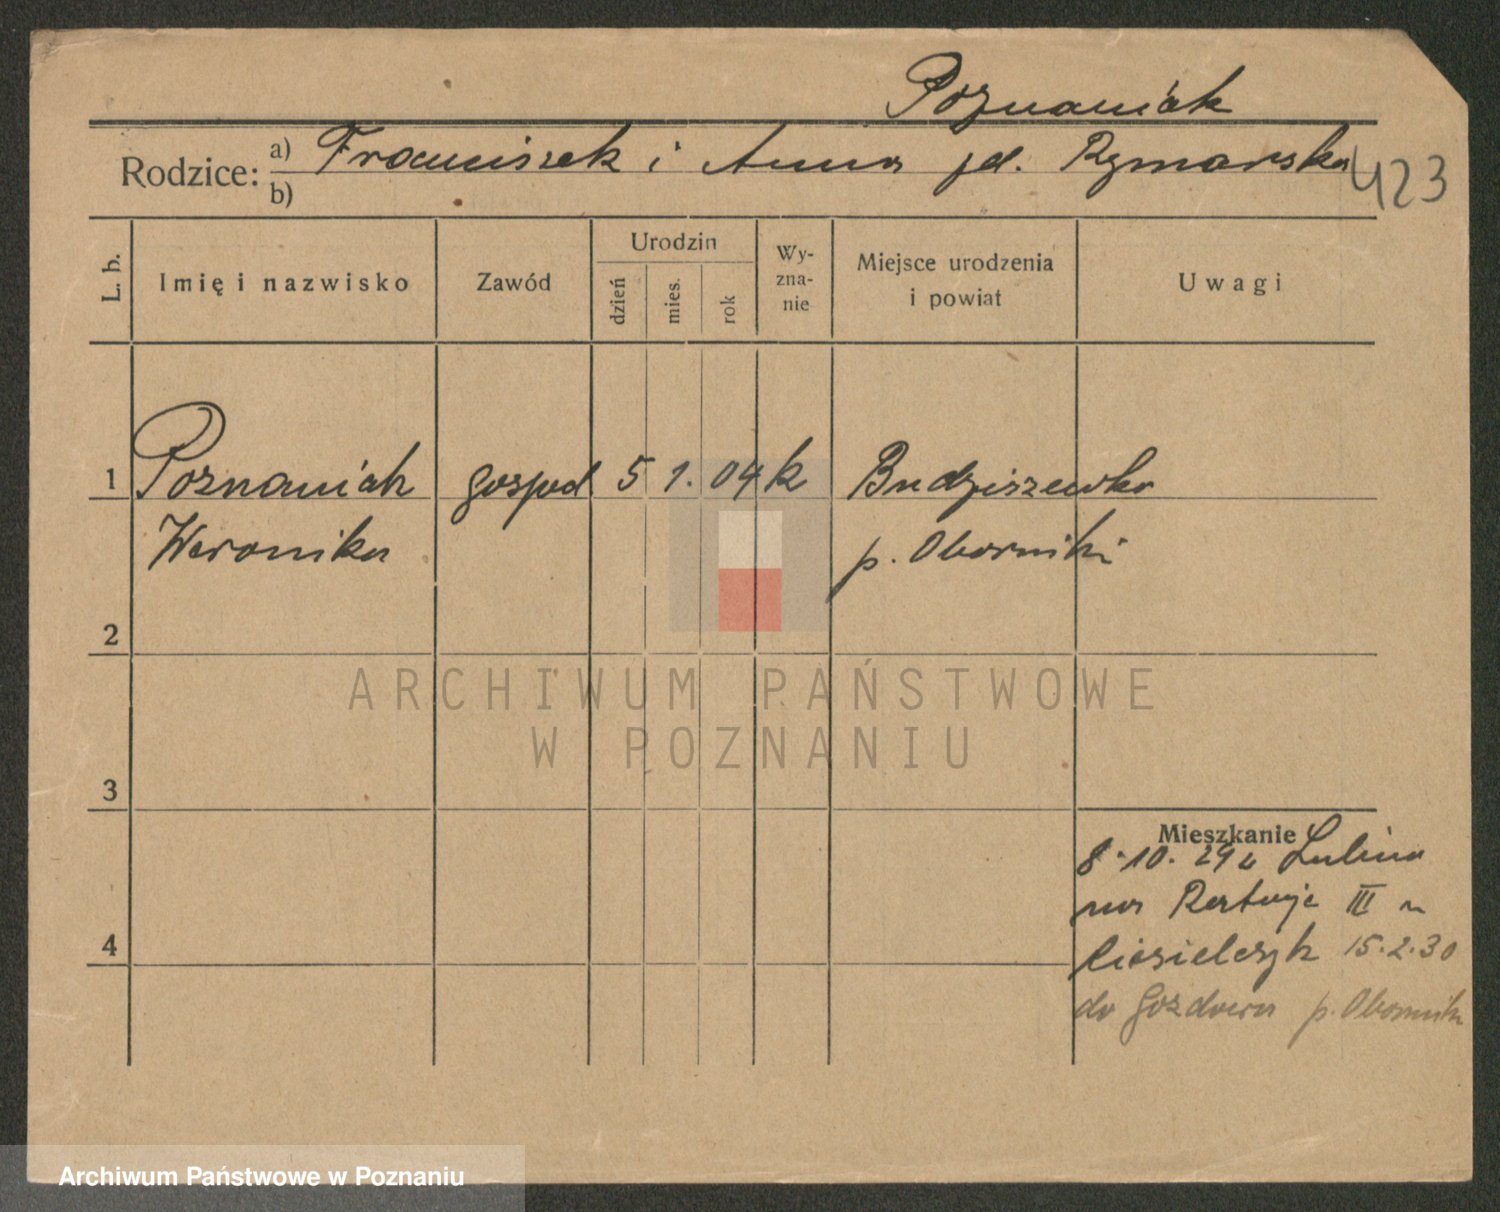 Poznaniak
Rodzice: a) Franciszek i Anna zd. Rymarska
b)
423
L. b.
Imię i nazwisko
Zawód
Urodzin
dzień
mies.
rok
Wy-
zna-
nie
Miejsce urodzenia
i powiat
Uwagi
1 Poznaniak gospod 5 1. 04 k Budziszewko
Weronika p. Oborniki
2
3
4
Mieszkanie
8.10.29 z
na III
15.2.30
do p. Oborniki
ARCHIWUM PAŃSTWOWE
W POZNANIU
Archiwum Państwowe w Poznaniu